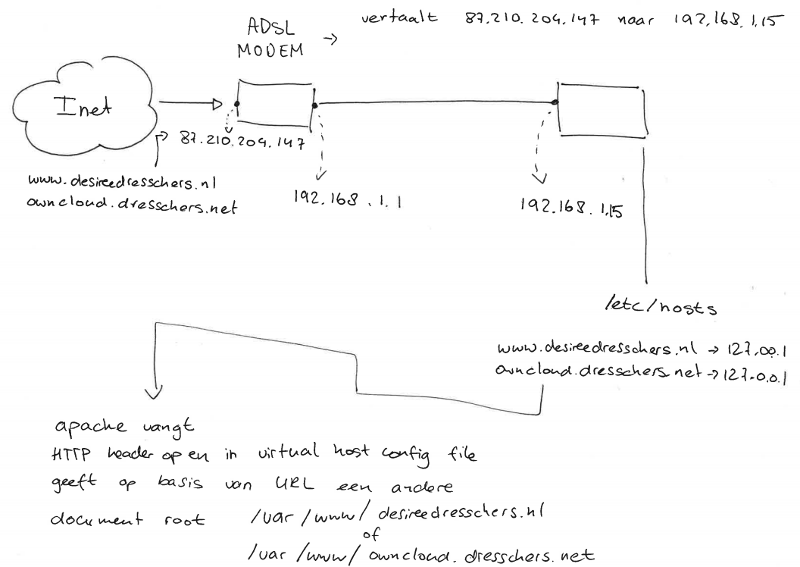 ADSL
MODEM → vertaalt 87.210.204.147 naar 192.168.1.15
Inet
87.210.204.147
www.desireedresschers.nl
owncloud.dresschers.net
192.168.1.1
192.168.1.15
/etc/hosts
www.desireedresschers.nl → 127.00.1
owncloud.dresschers.net → 127.0.0.1
apache vangt
HTTP header op en in virtual host config file
geeft op basis van URL een andere
document root /var/www/desireedresschers.nl
of
/var/www/owncloud.dresschers.net